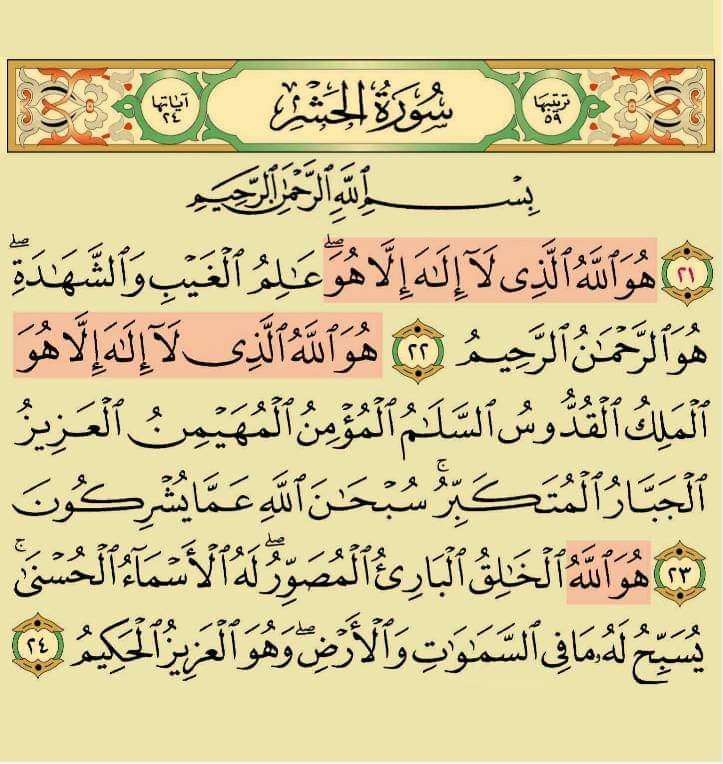 ترتيبها ٥٩ سُورَةُ الحَشْرِ آياتها ٢٤
بِسْمِ ٱللَّهِ ٱلرَّحْمَٰنِ ٱلرَّحِيمِ
٢١ هُوَ ٱللَّهُ ٱلَّذِى لَآ إِلَٰهَ إِلَّا هُوَۖ عَٰلِمُ ٱلْغَيْبِ وَٱلشَّهَٰدَةِۖ
هُوَ ٱلرَّحْمَٰنُ ٱلرَّحِيمُ ٢٢ هُوَ ٱللَّهُ ٱلَّذِى لَآ إِلَٰهَ إِلَّا هُوَ
ٱلْمَلِكُ ٱلْقُدُّوسُ ٱلسَّلَٰمُ ٱلْمُؤْمِنُ ٱلْمُهَيْمِنُ ٱلْعَزِيزُ
ٱلْجَبَّارُ ٱلْمُتَكَبِّرُۚ سُبْحَٰنَ ٱللَّهِ عَمَّا يُشْرِكُونَ
٢٣ هُوَ ٱللَّهُ ٱلْخَٰلِقُ ٱلْبَارِئُ ٱلْمُصَوِّرُۖ لَهُ ٱلْأَسْمَآءُ ٱلْحُسْنَىٰۚ
يُسَبِّحُ لَهُۥ مَا فِى ٱلسَّمَٰوَٰتِ وَٱلْأَرْضِۖ وَهُوَ ٱلْعَزِيزُ ٱلْحَكِيمُ ٢٤